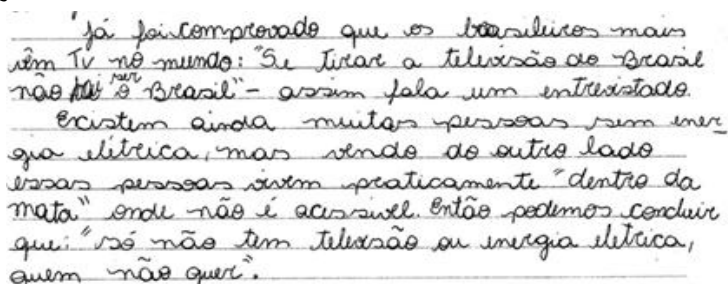 "Já foi comprovado que os brasileiros mais
vêm TV no mundo: "Se tirar a televisão do Brasil
não ser o Brasil" - assim fala um entrevistado.
Existem ainda muitas pessoas sem ener_
gia elétrica, mas vendo do outro lado
essas pessoas vivem praticamente "dentro da
mata" onde não é acessivel. Então podemos concluir
que: "só não tem televisão ou energia eletrica,
quem não quer".